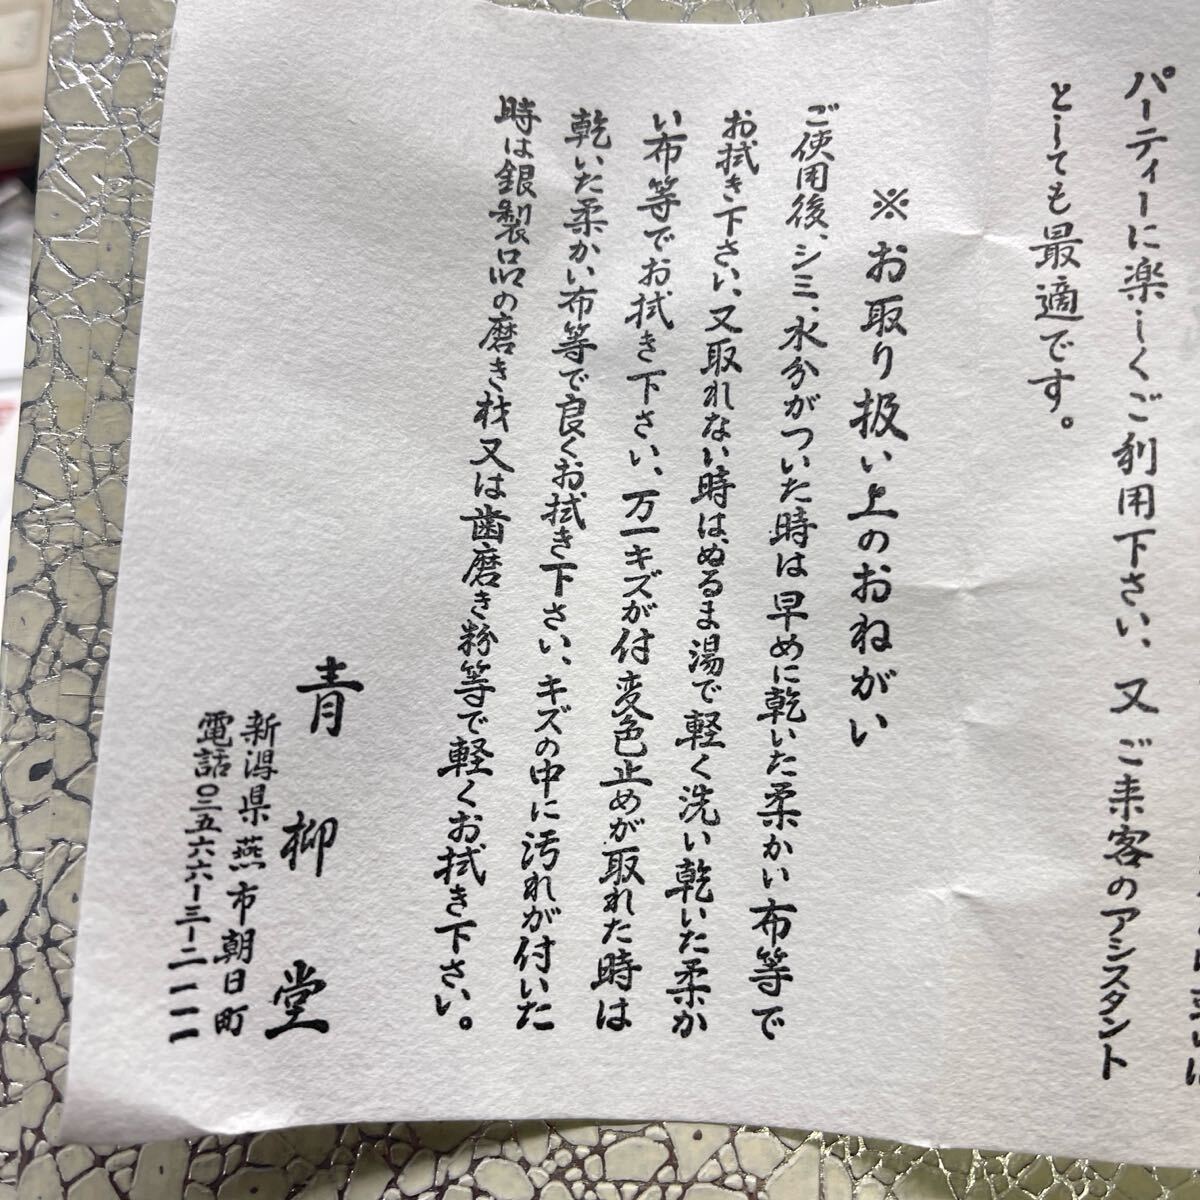 パーティーに楽しくご利用下さい、又ご来客のアシスタント
としても最適です。
※お取り扱い上のおねがい
ご使用後、シミ、水分がついた時は早めに乾いた柔かい布等で
お拭き下さい、又取れない時は、ぬるま湯で軽く洗い乾いた柔か
い布等でお拭き下さい、万一キズが付変色止めが取れた時は
乾いた柔かい布等で良くお拭き下さい、キズの中に汚れが付いた
時は銀製品の磨き材又は歯磨き粉等で軽くお拭き下さい。
青柳堂
新潟県燕市朝日町
電話〇二五六六ー三ー二一一一